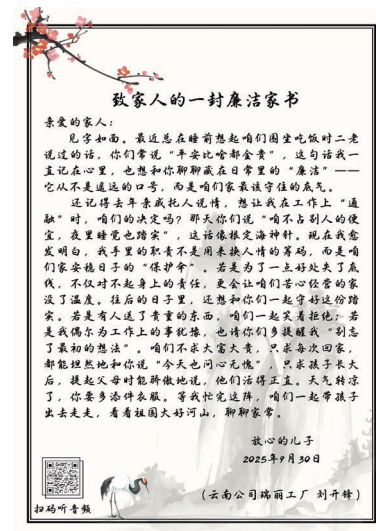 致家人的一封廉洁家书
亲爱的家人：
见字如面。最近总在睡前想起咱们围坐吃饭时二老
说过的话，你们常说“平安比啥都金贵”，这句话我一
直记在心里，也想和你聊聊藏在日常里的“廉洁”——
它从不是遥远的口号，而是咱们家最该守住的底气。
还记得去年亲戚托人说情，想让我在工作上“通
融”时，咱们的决定吗？那天你们说“咱不占别人的便
宜，夜里睡觉也踏实”，这话像根定海神针。现在我愈
发明白，我手里的职责不是用来换人情的筹码，而是咱
们家安稳日子的“保护伞”。若是为了一点好处失了底
线，不仅对不起身上的责任，更会让咱们苦心经营的家
没了温度。往后的日子里，还想和你们一起守好这份踏
实。若是有人送了贵重的东西，咱们一起笑着拒绝；若
是我偶尔为工作上的事犹豫，也请你们多提醒我“别忘
了最初的想法”。咱们不求大富大贵，只求每次回家，
都能坦然地和你说“今天也问心无愧”，只求孩子长大
后，提起父母时能骄傲地说，他们活得正直。天气转凉
了，你要多添件衣服。等我忙完这阵，咱们一起带孩子
出去走走，看看祖国大好河山，聊聊家常。
放心的儿子
2025年9月30日
（云南公司瑞丽工厂 刘开锋）
扫码听音频